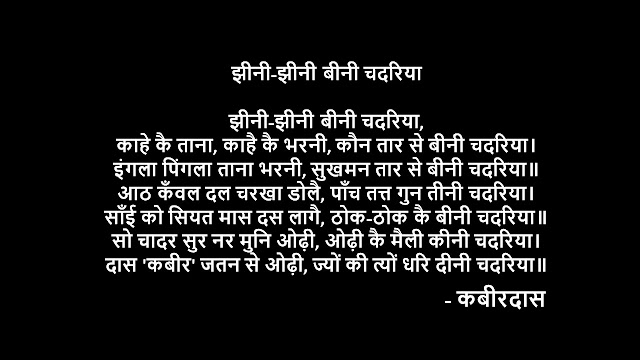 झीनी-झीनी बीनी चदरिया
झीनी-झीनी बीनी चदरिया,
काहे कै ताना, काहै कै भरनी, कौन तार से बीनी चदरिया।
इंगला पिंगला ताना भरनी, सुखमन तार से बीनी चदरिया॥
आठ कँवल दल चरखा डोलै, पाँच तत्त गुन तीनी चदरिया।
साँई को सियत मास दस लागै, ठोक-ठोक कै बीनी चदरिया॥
सो चादर सुर नर मुनि ओढ़ी, ओढ़ी कै मैली कीनी चदरिया।
दास 'कबीर' जतन से ओढ़ी, ज्यों की त्यों धरि दीनी चदरिया॥
- कबीरदास